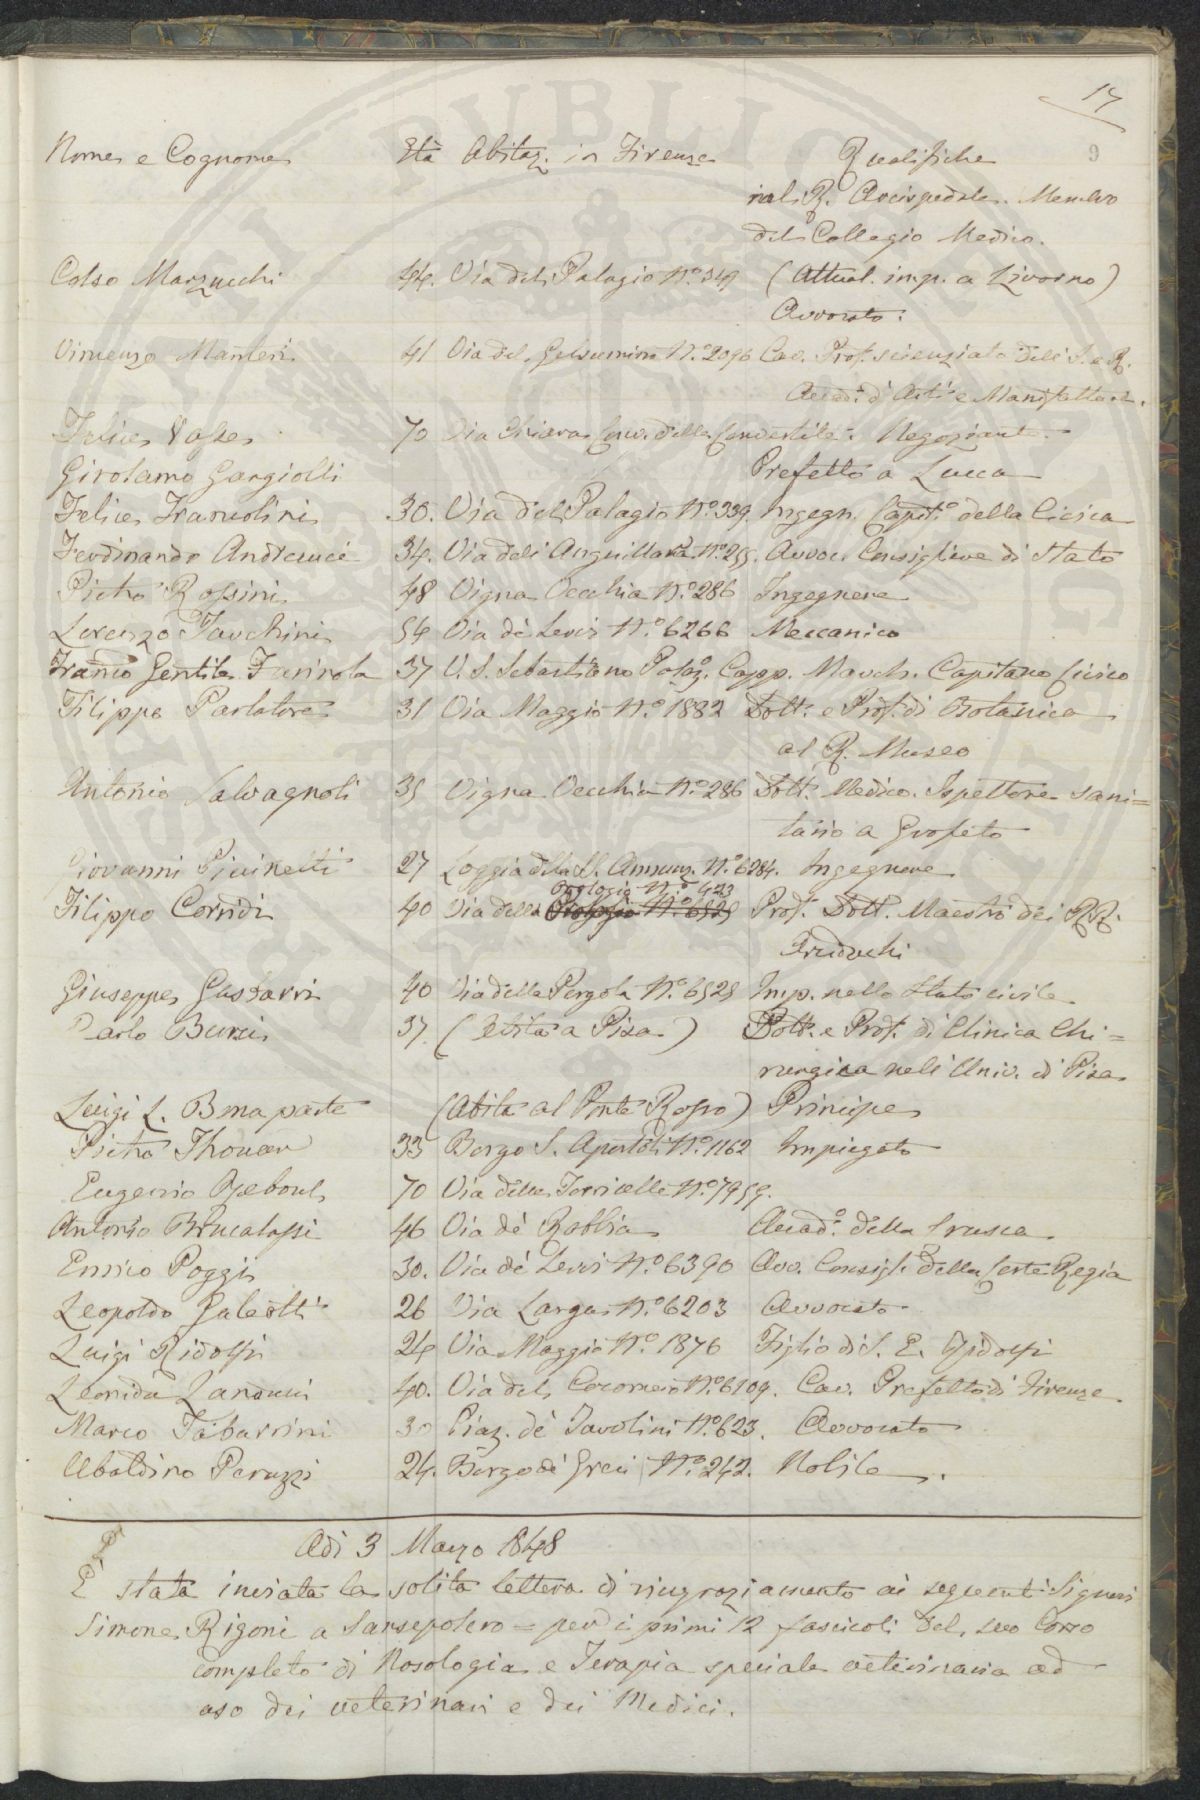 17
9
Nome e Cognome Età Abitaz. in Firenze Qualifiche
nel R. Arcispedale. Membro
del Collegio Medico.
Celso Marzucchi 44. Via del Palagio N.o 349 (Attual. imp. a Livorno)
Avvocato.
Vincenzo Manteri 41 Via del Gelsumino N.o 2096 Cav. Prof. scienziato dell' I. e R.
Accad. d'Arti e Manifatture.
Felice Vasse 70 Via Chiara Conv. delle Convertite. Negoziante
Girolamo Gargiolli Prefetto a Lucca
Felice Francolini 30. Via del Palagio N.o 339. Ingegn. Capit.o della Civica
Ferdinando Andreucci 34. Via dell' Anguillara N.o 255. Avvoc. Consigliere di Stato
Pietro Rossini 48 Vigna Vecchia N.o 286 Ingegnere
Lorenzo Turchini 54 Via de' Servi N.o 6266 Meccanico
Franco Gentile Farinola 37 V. S. Sebastiano Palaz.o Capp. March. Capitano Civico
Filippo Parlatore 31 Via Maggio N.o 1882 Dott. e Prof. di Botanica
al R. Museo
Antonio Salvagnoli 35 Vigna Vecchia N.o 286 Dott. Medico. Ispettore sani=
tario a Grosseto
Giovanni Piccinetti 27 Loggia della SS. Annunz. N.o 6284. Ingegnere
Orologio N.o 423
Filippo Corridi 40 Via della Pergola N.o 6525 Prof. Dott. Maestro dei RR.
Arciduchi
Giuseppe Gustarri 40 Via della Pergola N.o 6525 Imp. nello Stato civile
Carlo Burci 37. (Abita a Pisa) Dott. e Prof. di Clinica Chi=
rurgica nell' Univ. di Pisa
Luigi L. Bonaparte (Abita al Ponte Rosso) Principe
Pietro Thouar 33 Borgo S. Apostoli N.o 1162 Impiegato
Eugenio Reboul 70 Via delle Torricelle N.o 7959.
Antonio Brucalassi 46 Via de' Robbia Accad.o della Crusca.
Enrico Poggi 30. Via de' Servi N.o 6390 Avv. Consigl. della Corte Regia
Leopoldo Galeotti 26 Via Larga N.o 6203 Avvocato
Luigi Ridolfi 24 Via Maggio N.o 1876 Figlio di S. E. Ridolfi
Leonida Landucci 40. Via del Cocomero N.o 6109. Cav. Prefetto di Firenze
Marco Tabarrini 30 Piaz. de' Tavolini N.o 623. Avvocato
Ubaldino Peruzzi 24. Borgo de' Greci N.o 242. Nobile.
Adì 3 Marzo 1848
È stata inviata la solita lettera di ringraziamento ai seguenti Signori
Simone Rigoni a Sansepolcro = per i primi 12 fascicoli del suo Corso
completo di Nosologia e Terapia speciale veterinaria ad
uso dei veterinari e dei Medici.